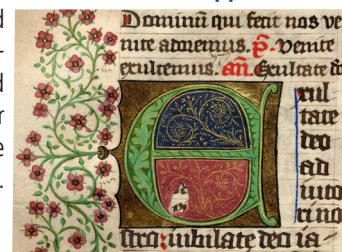 Dominū qui fecit nos ve
nite adoremus. p̄. Venite
exultemus. añ. Exultate d̄o
E
xul
tate
deo
ad
iuto
ri no
stro: iubilate deo ia